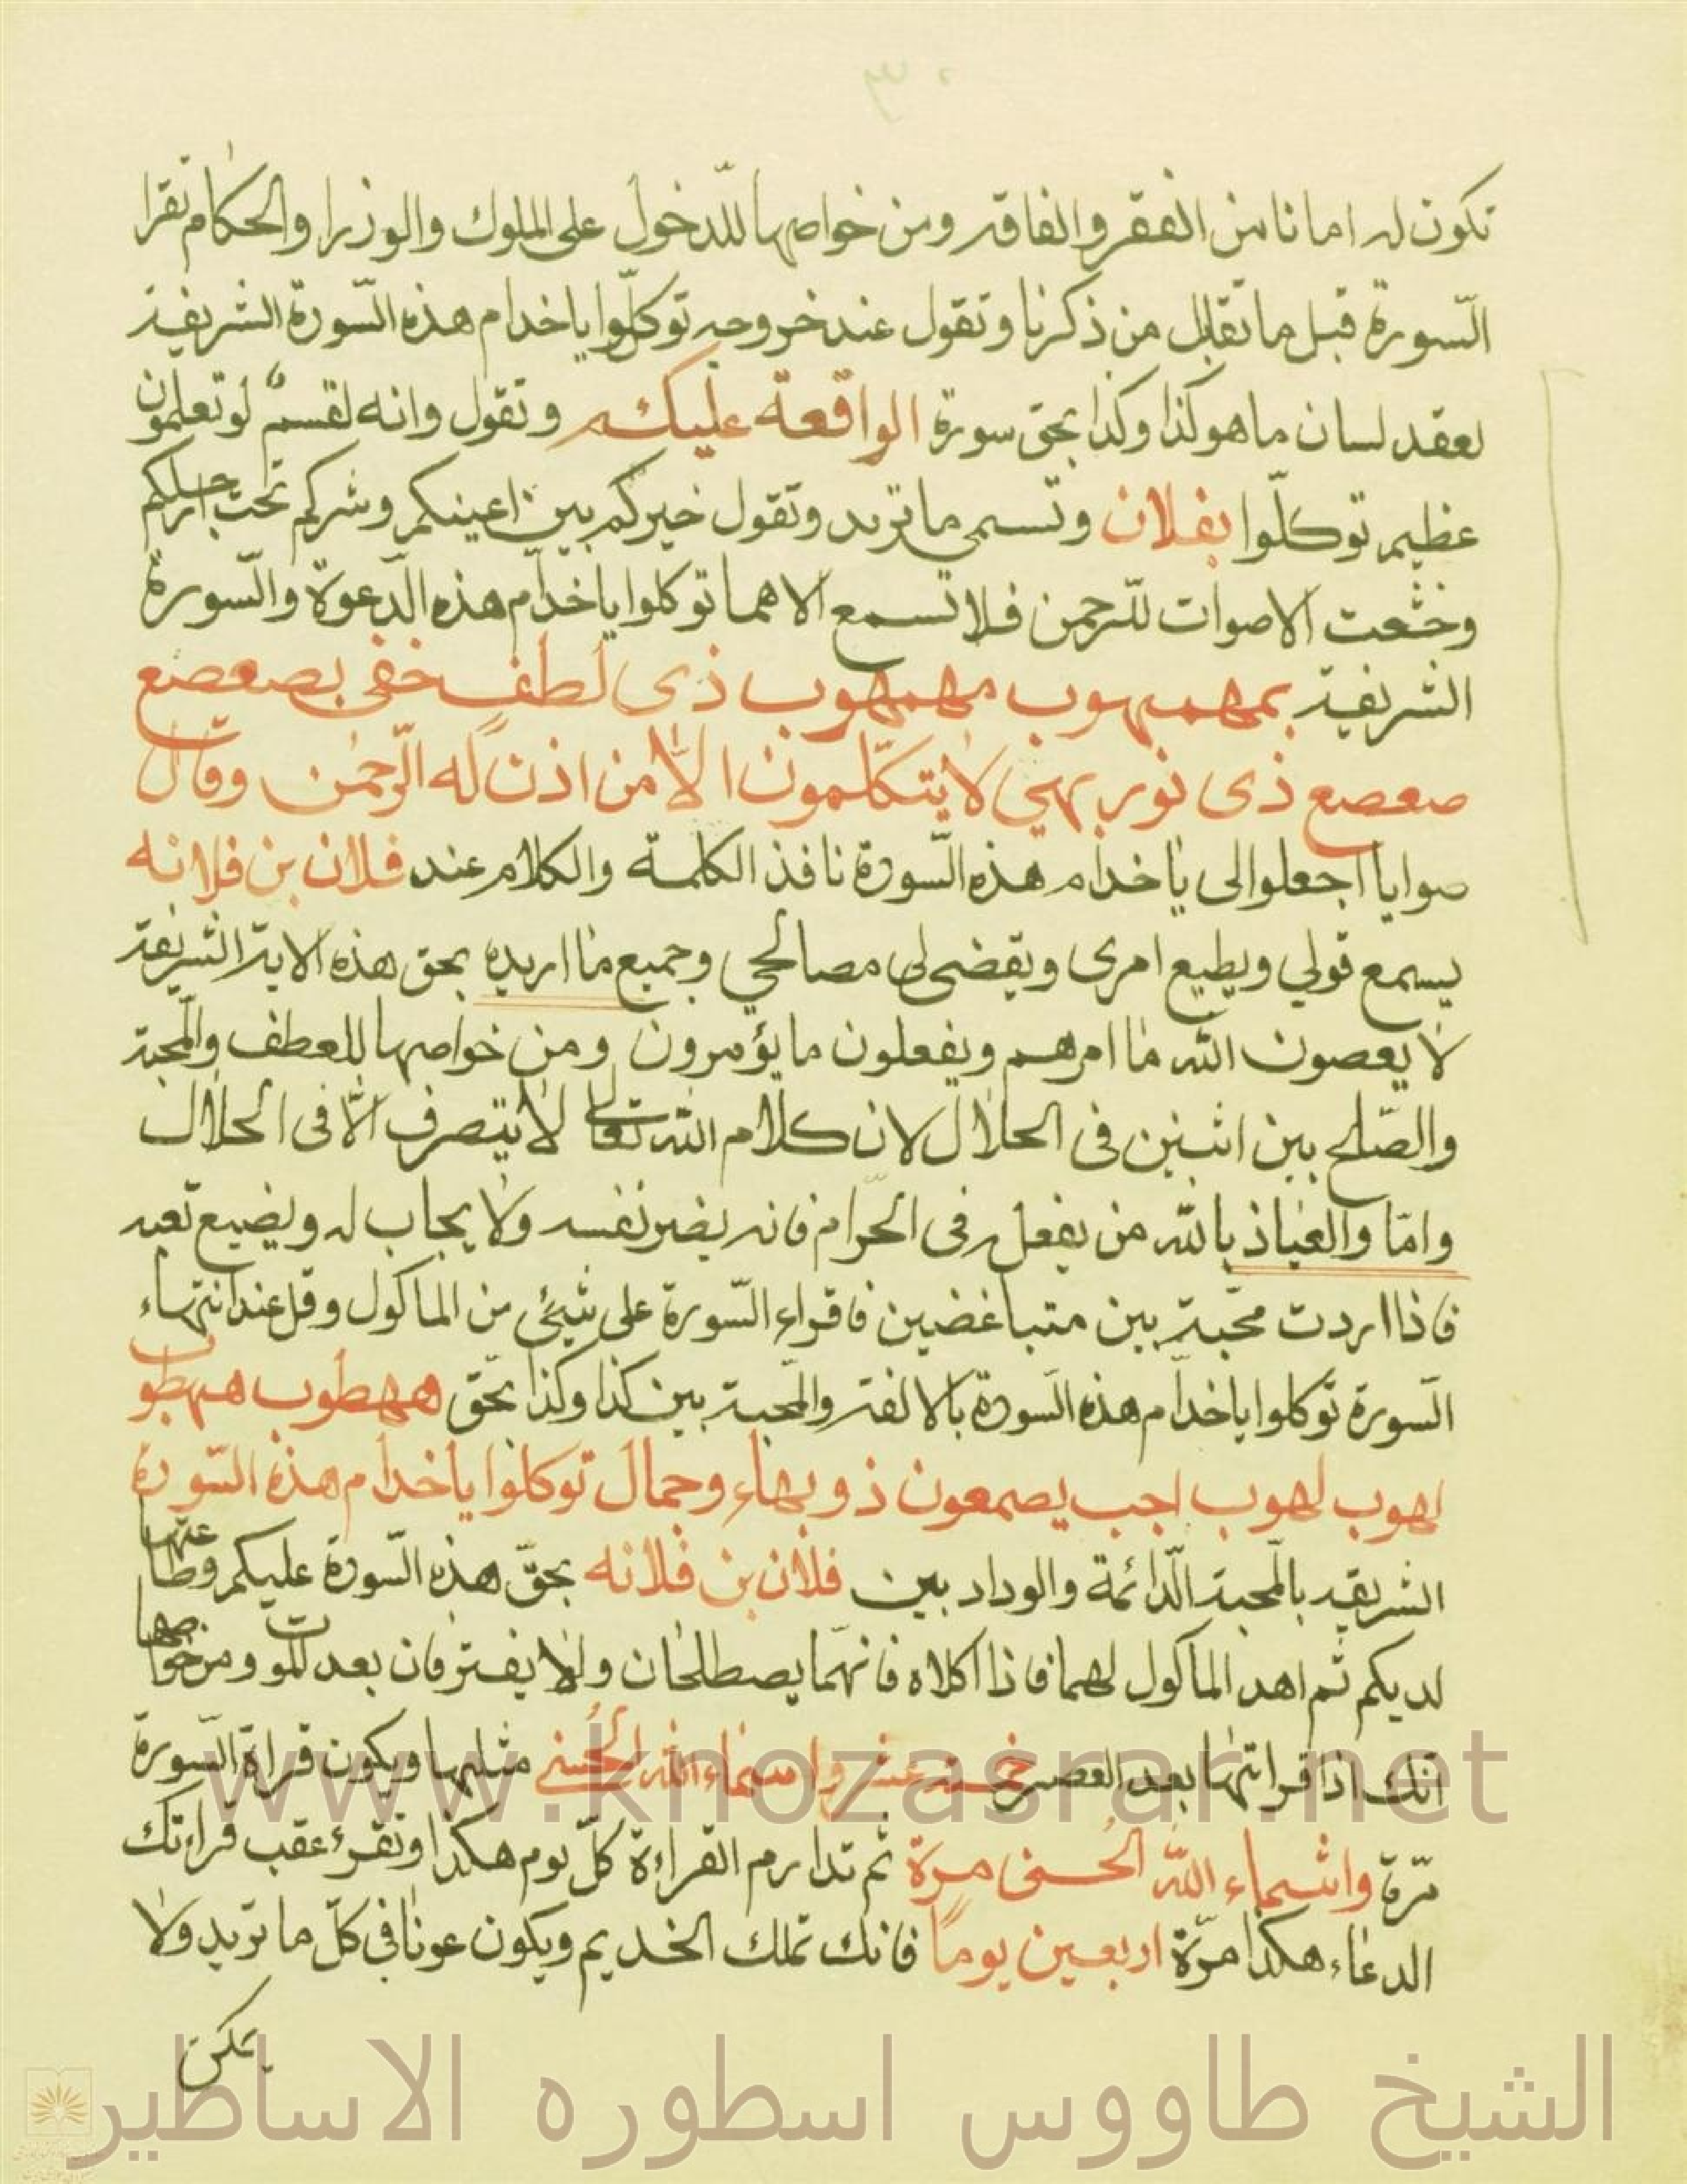 ٣٠
تكون له امانا من الفقر والفاقه ومن خواصها للدخول على الملوك والوزرا والحكام تقرا
السّورة قبل ما تقابل من ذكرنا وتقول عند خروجه توكلّوا يا خدام هذه السّورة الشريفة
لعقد لسان ما هو كذا وكذا بحق سورة الواقعة عليكم وتقول وانه لقسم لو تعلمون
عظيم توكلّوا بفلان وتسمى ما تريد وتقول خيركم بين اعينكم وشركم تحت ارجلكم
وخشعت الاصوات للرّحمن فلا تسمع الا همسا توكلوا يا خدّام هذه الدّعوة والسّورة
الشريفة بمهمهوب مهمهوب ذى لطف خفى بصعصع
صعصع ذى نور بهي لا يتكلّمون الّا من اذن له الرّحمٰن وقال
صوابا اجعلوا لى يا خدام هذه السّورة نافذ الكلمة والكلام عند فلان بن فلانه
يسمع قولي ويطيع امرى ويقضى لى مصالحي وجميع ما اريده بحق هذه الاية الشريفة
لا يعصون الله ما امرهم ويفعلون ما يؤمرون ومن خواصها للعطف والمحبة
والصّلح بين اثنين فى الحلال لان كلام الله تعالى لا يتصرف الّا فى الحلال
وامّا والعياذ بالله من يفعل فى الحرام فانه يضر نفسه ولا يجاب له ويضيع تعبه
فاذا اردت محبّة بين متباغضين فاقراء السّورة على شيئ من الماكول وقل عند انتهاء
السّورة توكلوا يا خدّام هذه السّورة بالالفة والمحبة بين كذا وكذا بحقّ ههطوب ههطوب
لهوب لهوب اجب يصمعون ذو بهاء وجمال توكلوا يا خدام هذه السّورة
الشريفه بالمحبة الدّائمة والوداد بين فلان بن فلانه بحقّ هذه السّورة عليكم وطاعتها
لديكم ثم اهد الماكول لهما فاذا اكلاه فانهّما يصطلحان ولا يفترقان بعد الموت ومن خواصها
انّك اذا قراتها بعد العصر خمسة عشر واسماء الله الحُسنى مثلها ويكون قراة السّورة
مرّة واسماء الله الحُسنى مرة ثم تداوم القراءة كلّ يوم هكذا وتقرء عقب قراءتك
الدعاء هكذا مرّة اربعين يوماً فانك تملك الخديم ويكون عونا فى كلّ ما تريد ولا
يمكن
www.knozasrar.net
الشيخ طاووس اسطوره الاساطير